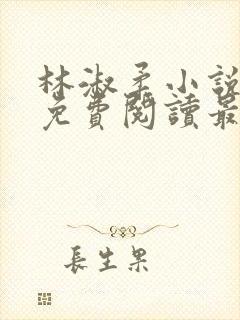 林淑柔小說
免費閱讀最
長生果